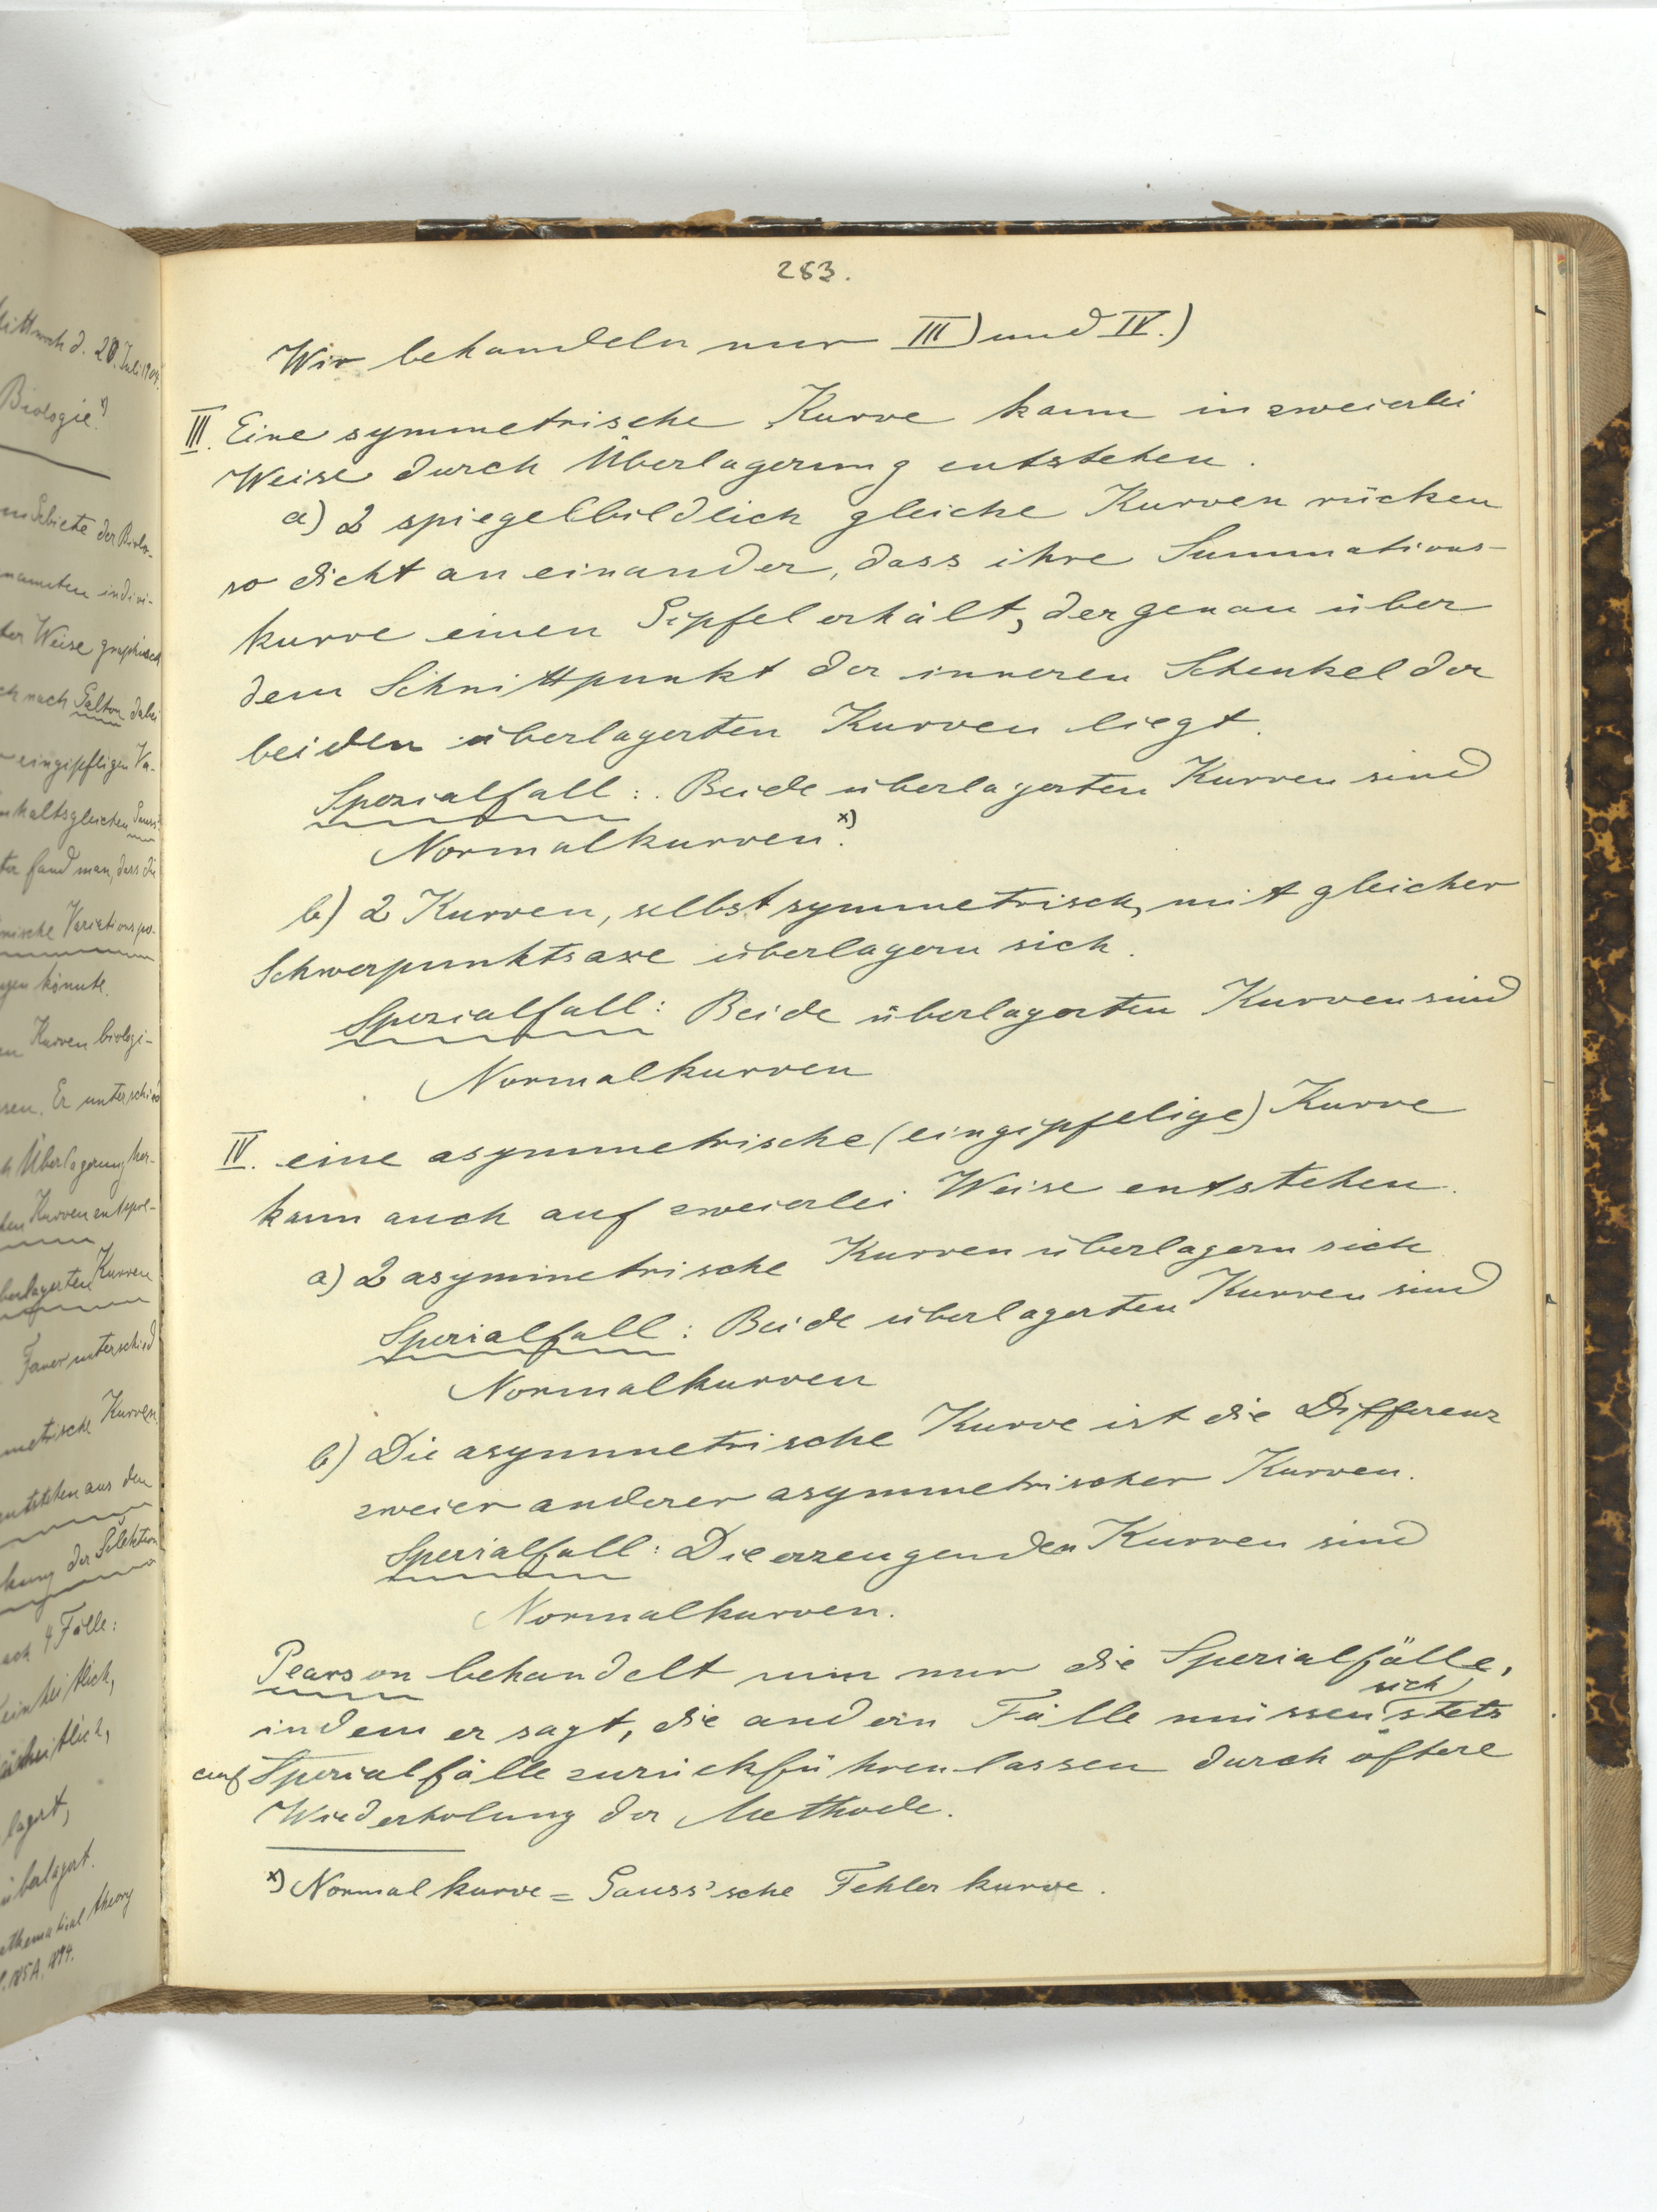 Mittwoch d. 20. Juli 1904.
Biologie
Galton
eingipfligen Va-
fand man, dass die
Variations
könnte.
Kurven biologi-
Er unterschied
Überlagerung her-
Kurven
Kurven
unterschied
metrische Kurven
entstehen aus den
der Selektion
4 Fälle:
einheitlich,
lagert,
überlagert.
mathematical theory
185A, 1894.
283.
Wir behandeln nur III) und IV.)
III. Eine symmetrische Kurve kann in zweierlei
Weise durch Überlagerung entstehen.
a) 2 spiegelbildlich gleiche Kurven rücken
so dicht an einander, dass ihre Summations-
kurve einen Gipfel erhält, der genau über
dem Schnittpunkt der inneren Schenkel der
beiden überlagerten Kurven liegt.
Spezialfall: Beide überlagerten Kurven sind
Normalkurven.x)
b) 2 Kurven, selbst symmetrisch, mit gleicher
Schwerpunktsaxe überlagern sich.
Spezialfall: Beide überlagerten Kurven sind
Normalkurven
IV. eine asymmetrische (eingipfelige) Kurve
kann auch auf zweierlei Weise entstehen.
a) 2 asymmetrische Kurven überlagern sich
Spezialfall: Beide überlagerten Kurven sind
Normalkurven
b) Die asymmetrische Kurve ist die Differenz
zweier anderer asymmetrischer Kurven.
Spezialfall: Die erzeugenden Kurven sind
Normalkurven.
Pearson behandelt nun nur die Spezialfälle,
indem er sagt, die andern Fälle müssen sich stets
auf Spezialfälle zurückführen lassen durch öftere
Wiederholung der Methode.
x) Normalkurve = Gauss'sche Fehlerkurve.